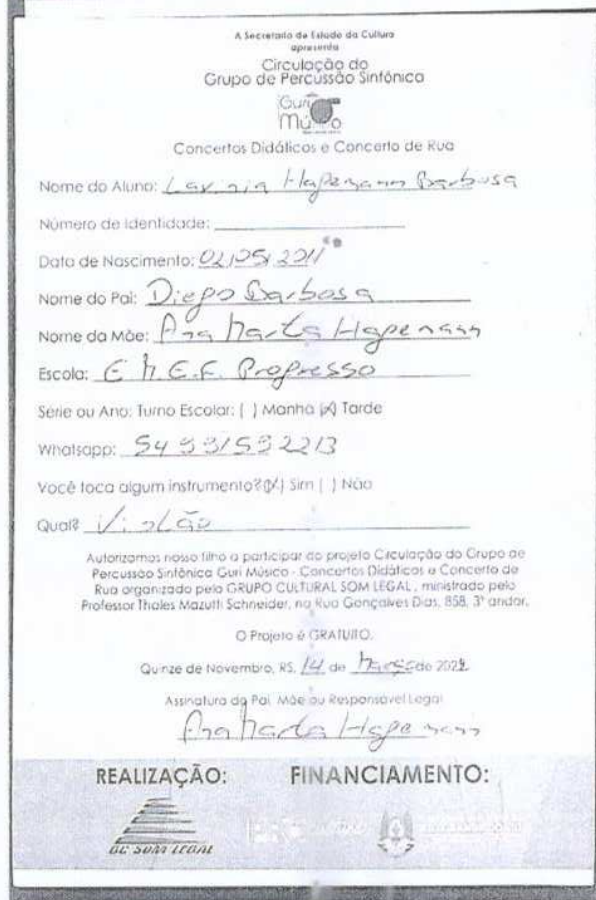 A Secretaria de Estado da Cultura
apresenta
Circulação do
Grupo de Percussão Sinfônica
Guri
Músico
Concertos Didáticos e Concerto de Rua
Nome do Aluno: Lavinia Hapemann Barbosa
Número de Identidade:
Data de Nascimento: 02/05/2011
Nome do Pai: Diego Barbosa
Nome da Mãe: Ana Marta Hapemann
Escola: E.M.E.F. Progresso
Série ou Ano: Turno Escolar: ( ) Manhã (x) Tarde
Whatsapp:
Você toca algum instrumento? (x) Sim ( ) Não
Qual? Violão
Autorizamos nosso filho a participar do projeto Circulação do Grupo de
Percussão Sinfônica Guri Músico - Concertos Didáticos e Concerto de
Rua organizado pelo GRUPO CULTURAL SOM LEGAL, ministrado pelo
Professor Thales Mazutti Schneider, na Rua Gonçalves Dias, 858, 3º andar.
O Projeto é GRATUITO.
Quinze de Novembro, RS, 14 de Março de
Assinatura do Pai, Mãe ou Responsável Legal
Ana Marta Hapemann
REALIZAÇÃO: FINANCIAMENTO:
GC SOM LEGAL